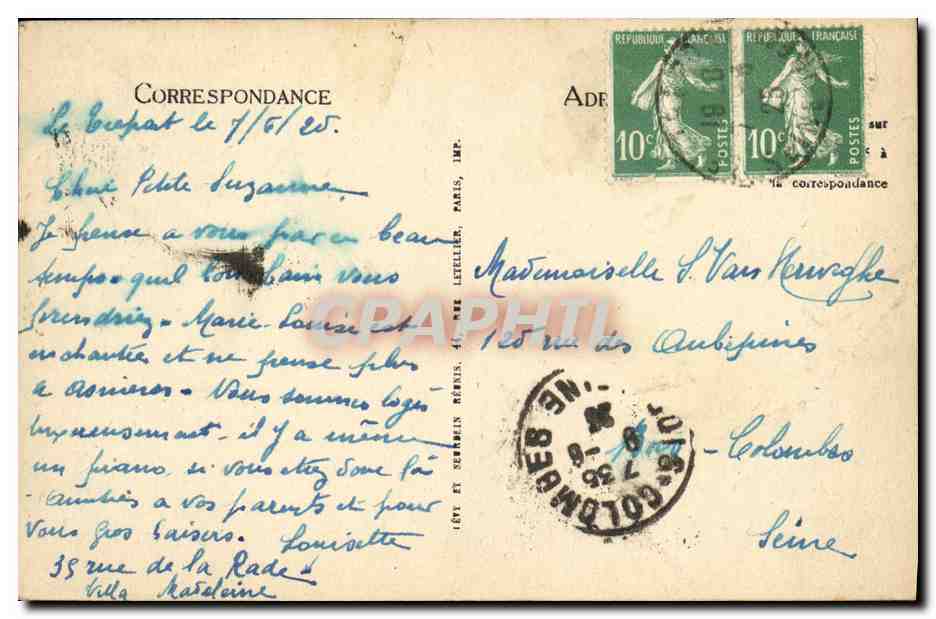 CORRESPONDANCE
Le Treport le 7/6/25.
Chère Petite Suzanne,
Je pense a vous par ce beau
temps quel bon bain vous
prendriez. Marie Louise est
enchantée et ne pense plus
a Asnieres. Nous sommes logés
luxueusement. il y a même
un piano. si vous etiez donc là
Amitiés a vos parents et pour
vous gros baisers. Louisette
35 rue de la Rade
Villa Madeleine
LÉVY ET NEURDEIN RÉUNIS, 44, RUE LETELLIER, PARIS, IMP.
ADR
RÉPUBLIQUE FRANÇAISE
10c POSTES
RÉPUBLIQUE FRANÇAISE
10c POSTES
sur
à
la correspondance
Mademoiselle S. Van Herweghe
125 rue des Aubépines
Bois-Colombes
Seine
COLOMBES
7 35
CPAPHIL